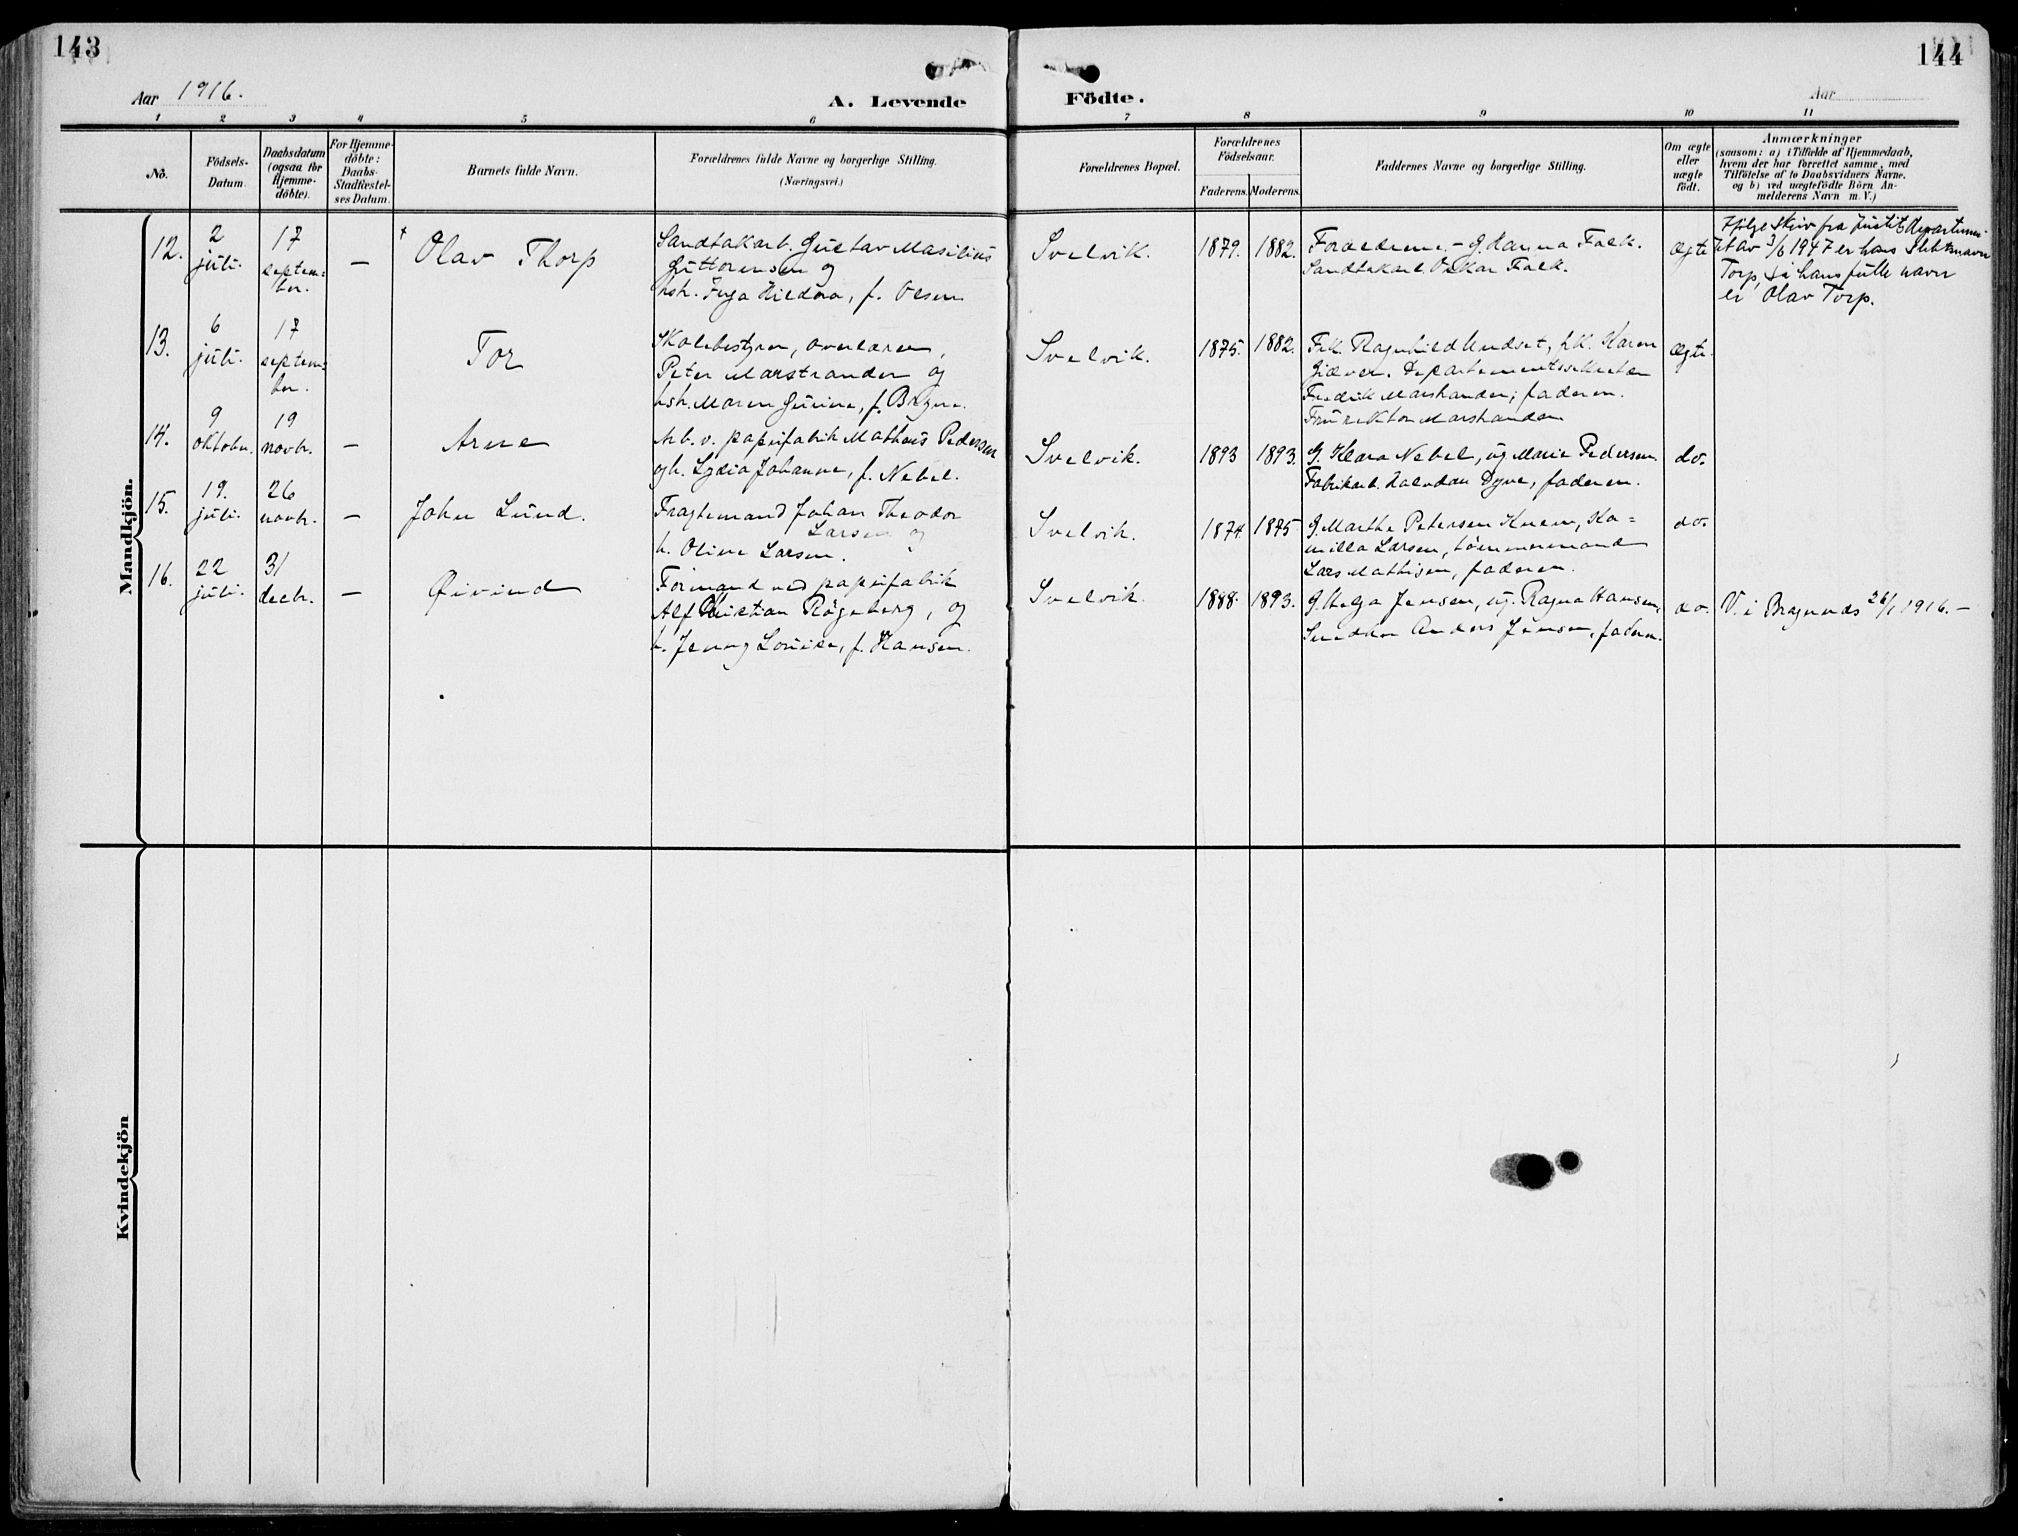 143
144
Aar 1916.
A. Levende
Födte.
Aar
1 2 3 4 5 6 7 8 9 10 11
No.
Födsels-
Datum
Daabsdatum
(ogsaa for
Hjemme-
döbte).
For Hjemme-
döbte:
Daabs-
Stadfæstel-
ses Datum.
Barnets fulde Navn.
Forældrenes fulde Navne og borgerlige Stilling.
(Næringsvei.)
Forældrenes Bopæl.
Forældrenes
Födselsaar.
Faderens. Moderens.
Faddernes Navne og borgerlige Stilling.
Om ægte
eller
uægte
født.
Anmærkninger
(saasom: a) i Tilfælde af Hjemmedaab,
hvem der har forrettet samme, med
Tilföielse af to Daabsvidners Navne.
og b) ved uægtefödte Börn An-
melderens Navn m. V.)
Mandkjön.
12.
2
juli.
17
septem-
ber.
—
Olav Thorp
Sandtakarb. Gustav Masilius
Guttorensen og
hsh. Inga Hildora, f. Olsen
Svelvik.
1879. 1882.
Forældrene. - G. Hanna Falk.
Sandtakarb. Oskar Falk.
Ægte
Ifølge skriv fra Justitsdepartemen-
tet av 3/6 1947 er hans slektsnavn
Torp, så hans fulle navn
er Olav Torp.
13.
6
juli.
17
septem-
ber.
Tor
Skolebestyrer, overlærer,
Peter Marstrander og
hsh. Maren Gurine, f. Bryne.
Svelvik.
1875. 1882.
Frk. Ragnhild Undset, frk. Karen
Giæver. Departementssekretær
Fredrik Marstrander; faderen.
Fru rektor Marstrander
Ægte.
14.
9
oktober.
19
novbr.
—
Arne
Arb. v. papirfabrik Matheus Pedersen
og h. Lydia Johanne, f. Nebel.
Svelvik.
1893 1893.
G. Klara Nebel, ug. Marie Pedersen.
Fabrikarb. Halvdan Dyve, faderen.
do.
15.
19.
juli.
26
novbr.
—
John Lund.
Fragtemand Johan Theodor
Larsen og
h. Oline Larsen.
Svelvik.
1874 1875
G. Marthe Petersen Knem, Ka=
milla Larsen, tømmermand
Lars Mathisen, faderen.
do.
16.
22
juli.
31
decbr.
—
Øivind
Formand ved papirfabrik
Alf Christian Røgeberg, og
h. Jenny Louise, f. Hansen.
Svelvik.
1888. 1893.
G. Helga Jensen, ug. Ragna Hansen,
Snedker Anders Jensen, faderen.
do.
V. i Bragernæs 26/1 1916. —
Kvindekjön